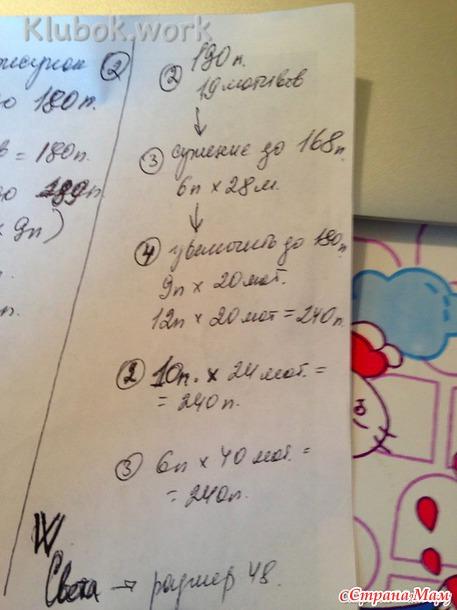 Klubok.work
рисунок ②
180п.
= 180п.
× 9п)
② 190п.
19 мотивов
↓
③ сужение до 168п.
6п × 28м.
↓
④ увеличить до 180п.
9п × 20мот.
12п × 20мот = 240п.
② 10п. × 24мот. =
= 240п.
③ 6п × 40мот. =
= 240п.
Света → размер 48.
©Страна Мам